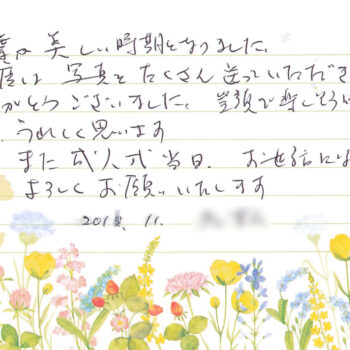 葉が美しい時期となりました。
度は写真をたくさん送っていただき
がとうございました。笑顔で楽しそう
うれしく思います
また成人式当日、お世話にな
よろしくお願いいたします
201 . 11.